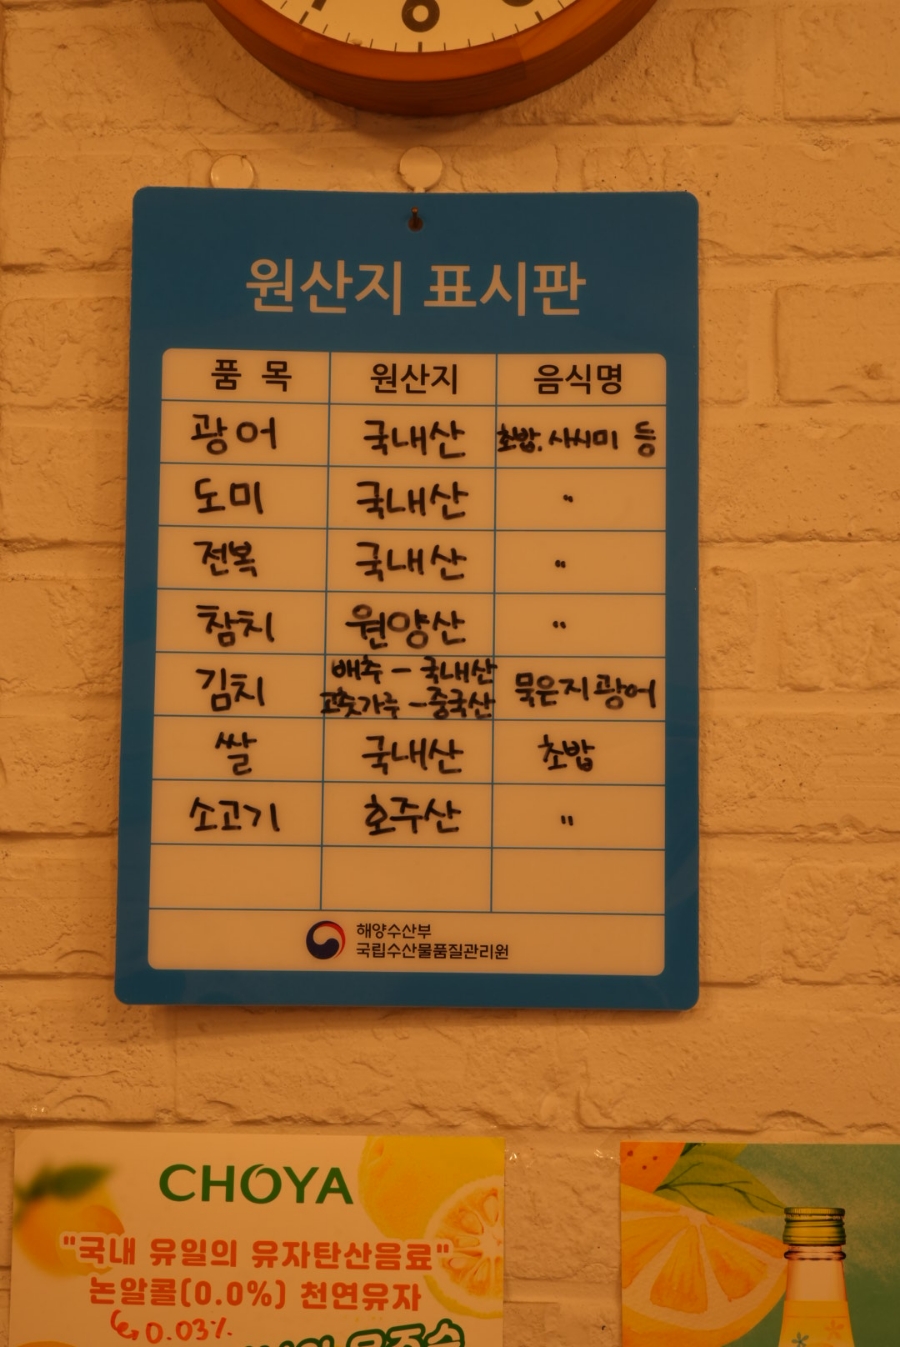 6
원산지 표시판
품 목 원산지 음식명
광어 국내산 초밥, 사시미 등
도미 국내산 "
전복 국내산 "
참치 원양산 "
김치 배추 - 국내산 묵은지광어
고춧가루 - 중국산
쌀 국내산 초밥
소고기 호주산 "
해양수산부
국립수산물품질관리원
CHOYA
"국내 유일의 유자탄산음료"
논알콜(0.0%) 천연유자
0.03%